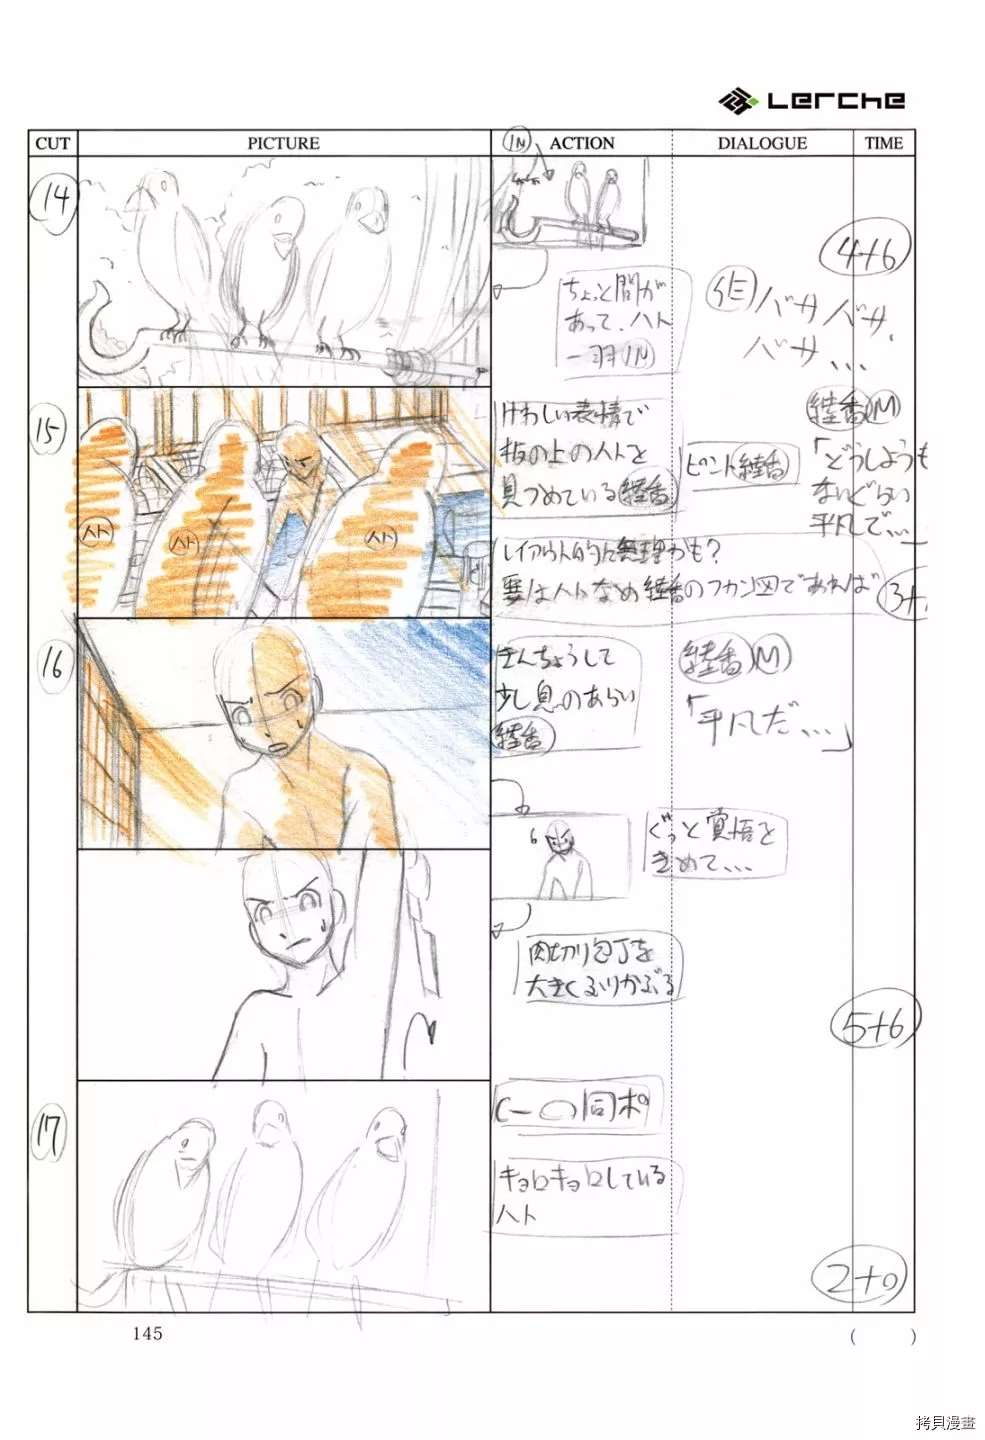 Lerche
CUT
PICTURE
ACTION
DIALOGUE
TIME
14
IN
4+6
ちょっと間が
あって、ハト
一羽IN
SE
バサバサ、
バサ、、、
15
ハト
ハト
ハト
けわしい表情で
板の上のハトを
見つめている
ピント
M
「どうしようも
ないぐらい
平凡で、、、」
レイアウト的に無理かも?
要はハトなめ
のフカン図であれば
3+
16
きんちょうして
少し息のあらい
M
「平凡だ、、、」
ぐっと覚悟を
きめて、、、
肉切り包丁を
大きくふりかぶる
5+6
17
の同ポ
キョロキョロしている
ハト
2+0
145
( )
拷貝漫畫